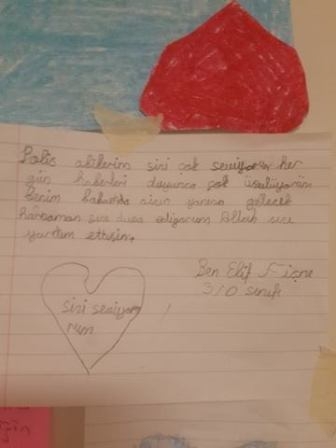 Polis abilerim sizi çok seviyorum her
gün haberleri duyunca çok üzülüyorum
benim babamda sizin yanına gelecek
size dua ediyorum Allah size
yardım ettisin.
Ben Elif
3/D sınıfı
sizi seviyom
rum